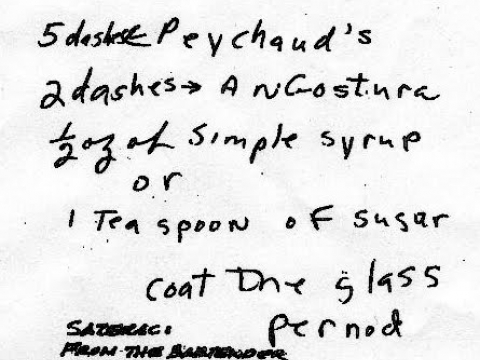 5 dashes Peychaud's
2 dashes → Angostura
1/2 oz of simple syrup
or
1 Teaspoon of sugar
coat the glass
Pernod
SAZERAC:
FROM THE BARTENDER